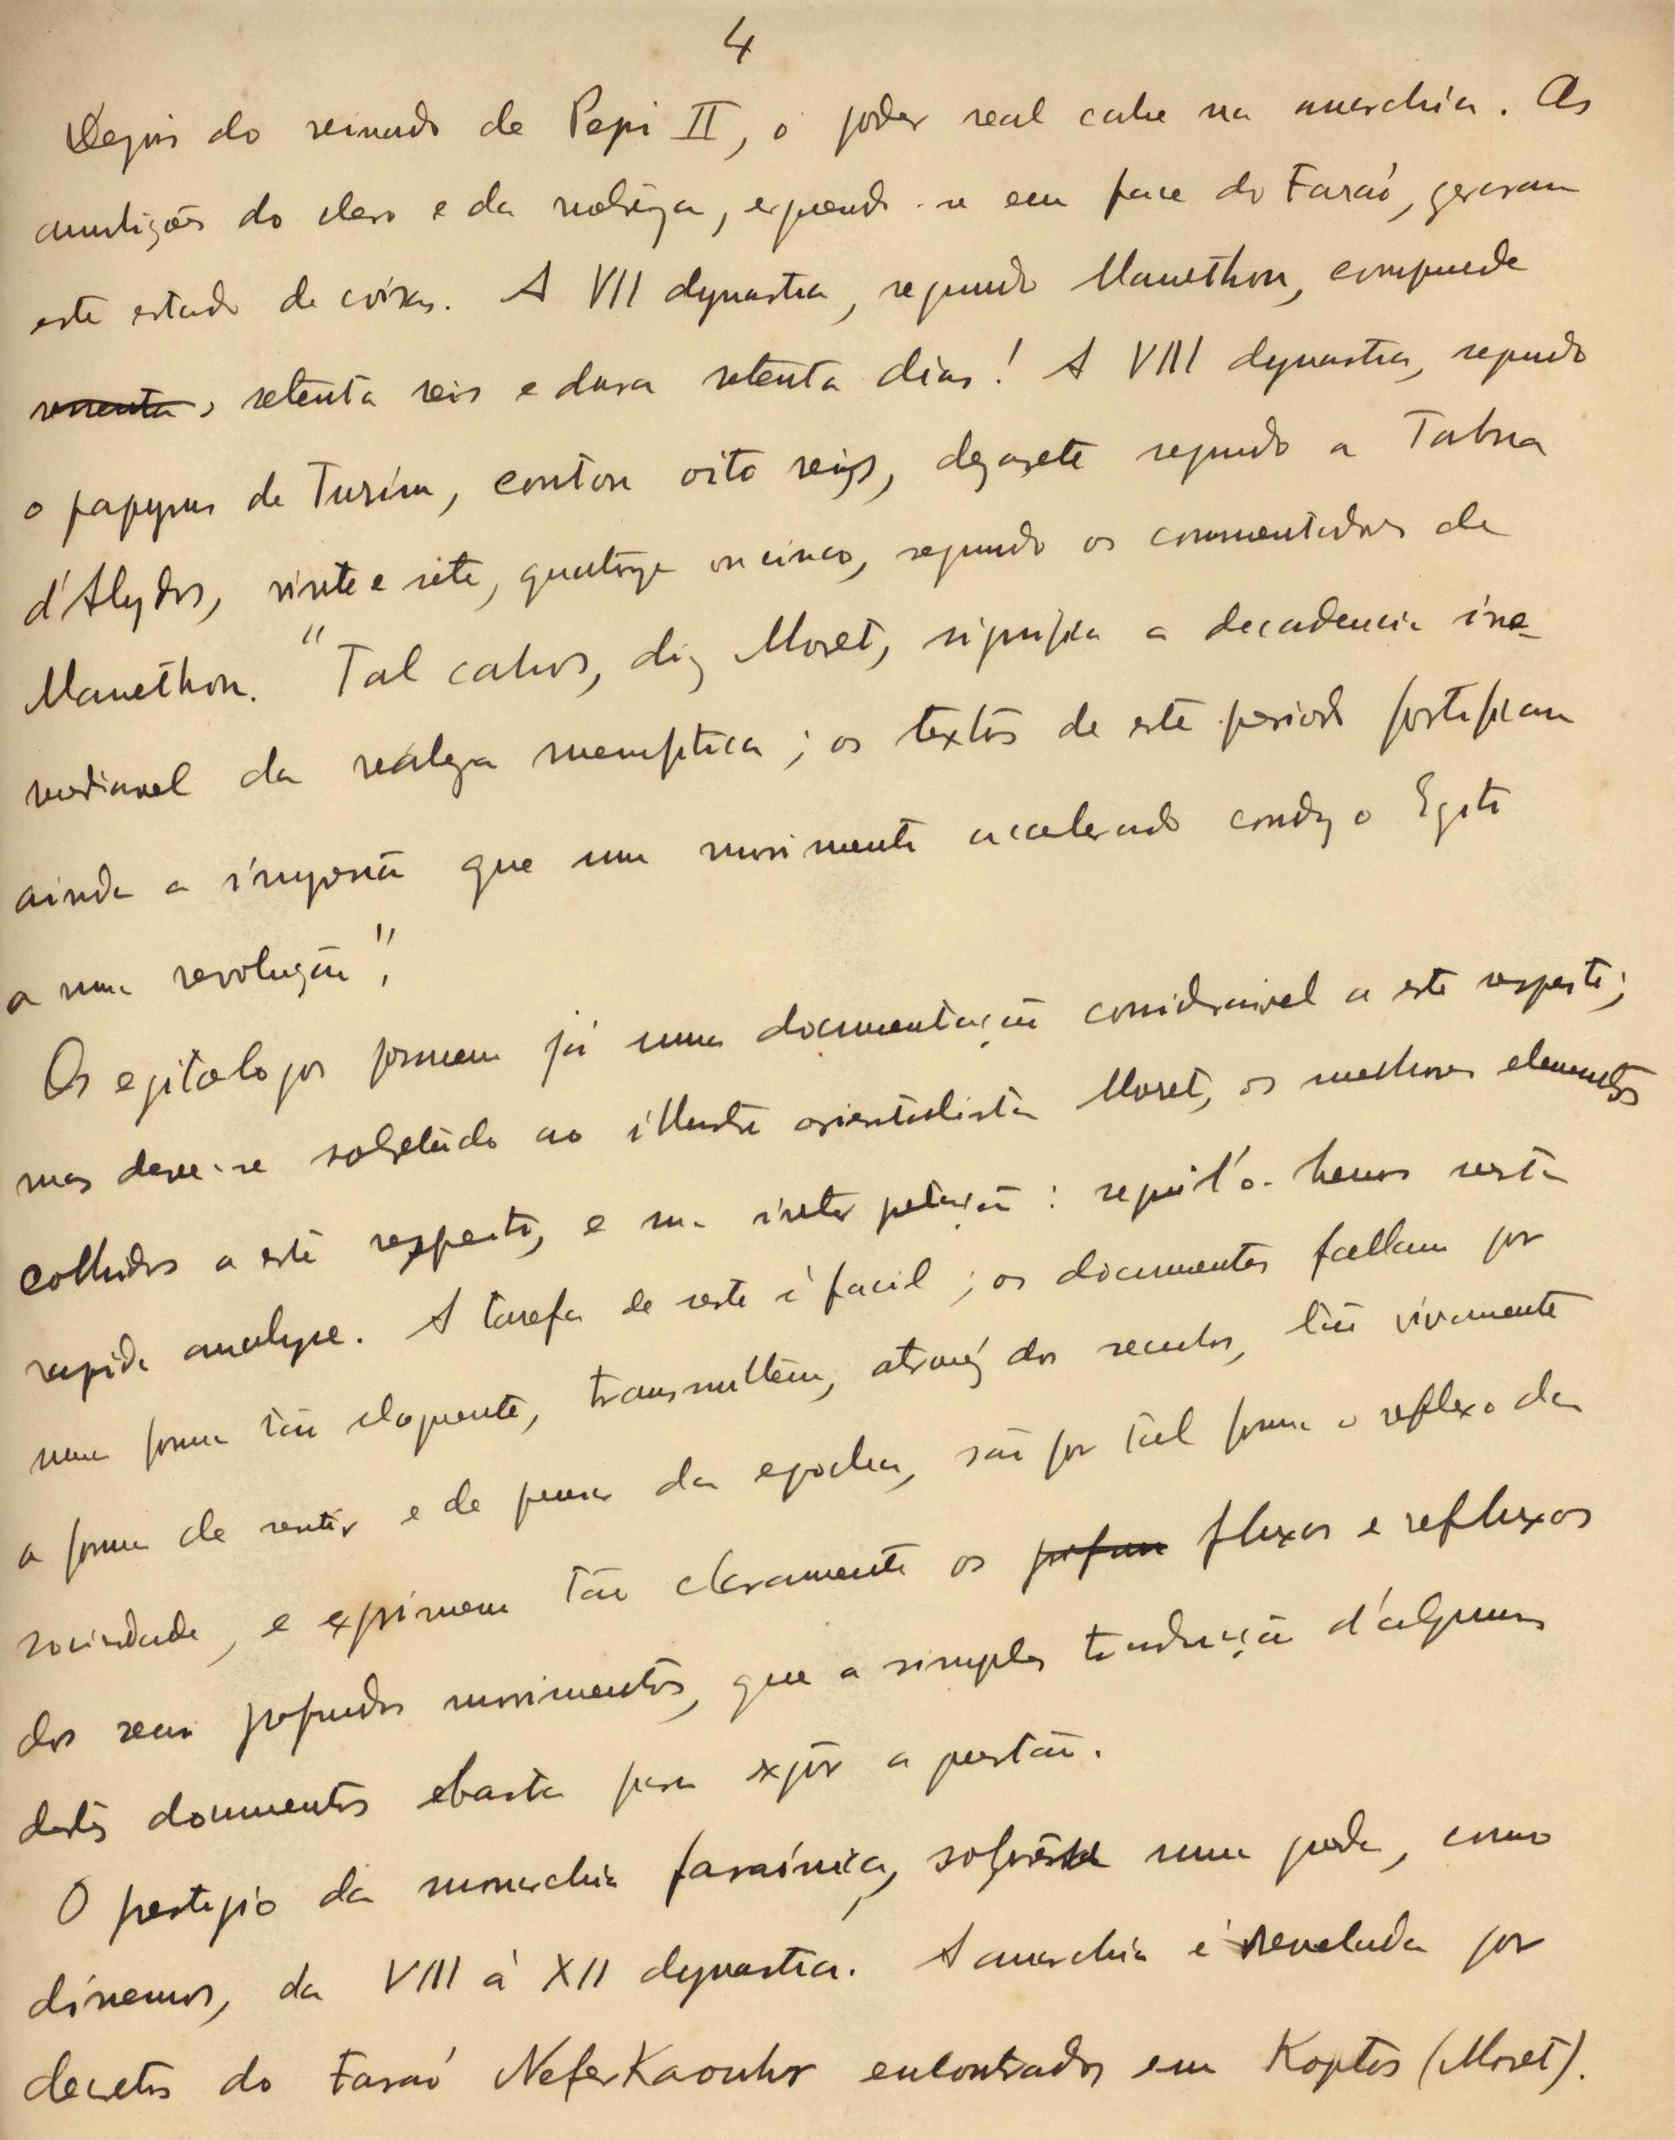 4
Depois do reinado de Pepi II, o poder real cahe na anarchia. As
ambições do clero e da nobreza, erguendo-se em face do Faraó, geraram
este estado de coisas. A VII dynastia, segundo Manethon, comprende
sessenta, setenta reis e dura setenta dias! A VIII dynastia, segundo
o papyrus de Turim, contou oito reis, dezasete segundo a Taboa
d'Abydos, vinte e sete, quatorze ou cinco, segundo os commentadores de
Manethon. "Tal cahos, diz Moret, significa a decadencia irre-
mediavel da realeza memfitica; os textos de este periodo fortificam
ainda a impressão que um movimento accelerado conduz o Egito
a uma revolução".
Os egitologos possuem já uma documentação consideravel a este respeito;
mas deve-se sobretudo ao illustre orientalista Moret, os melhores elementos
colhidos a este respeito, e sua interpretação: seguil'o-hemos nesta
rapida analyse. A tarefa de resto é facil; os documentos fallam por
uma forma tão eloquente, transmittem, atravéz dos seculos, tão vivamente
a forma de sentir e de pensar da epocha, são por tal forma o reflexo da
sociedade, e exprimem tão claramente os profun fluxos e refluxos
dos seus profundos movimentos, que a simples traducção d'alguns
destes documentos basta para expôr a questão.
O prestigio da monarchia faraónica, sofrêra uma queda, como
dissemos, da VIII á XII dynastia. A anarchia é revelada por
decretos do Faraó NeferKaouhor encontrados em Koptos (Moret).